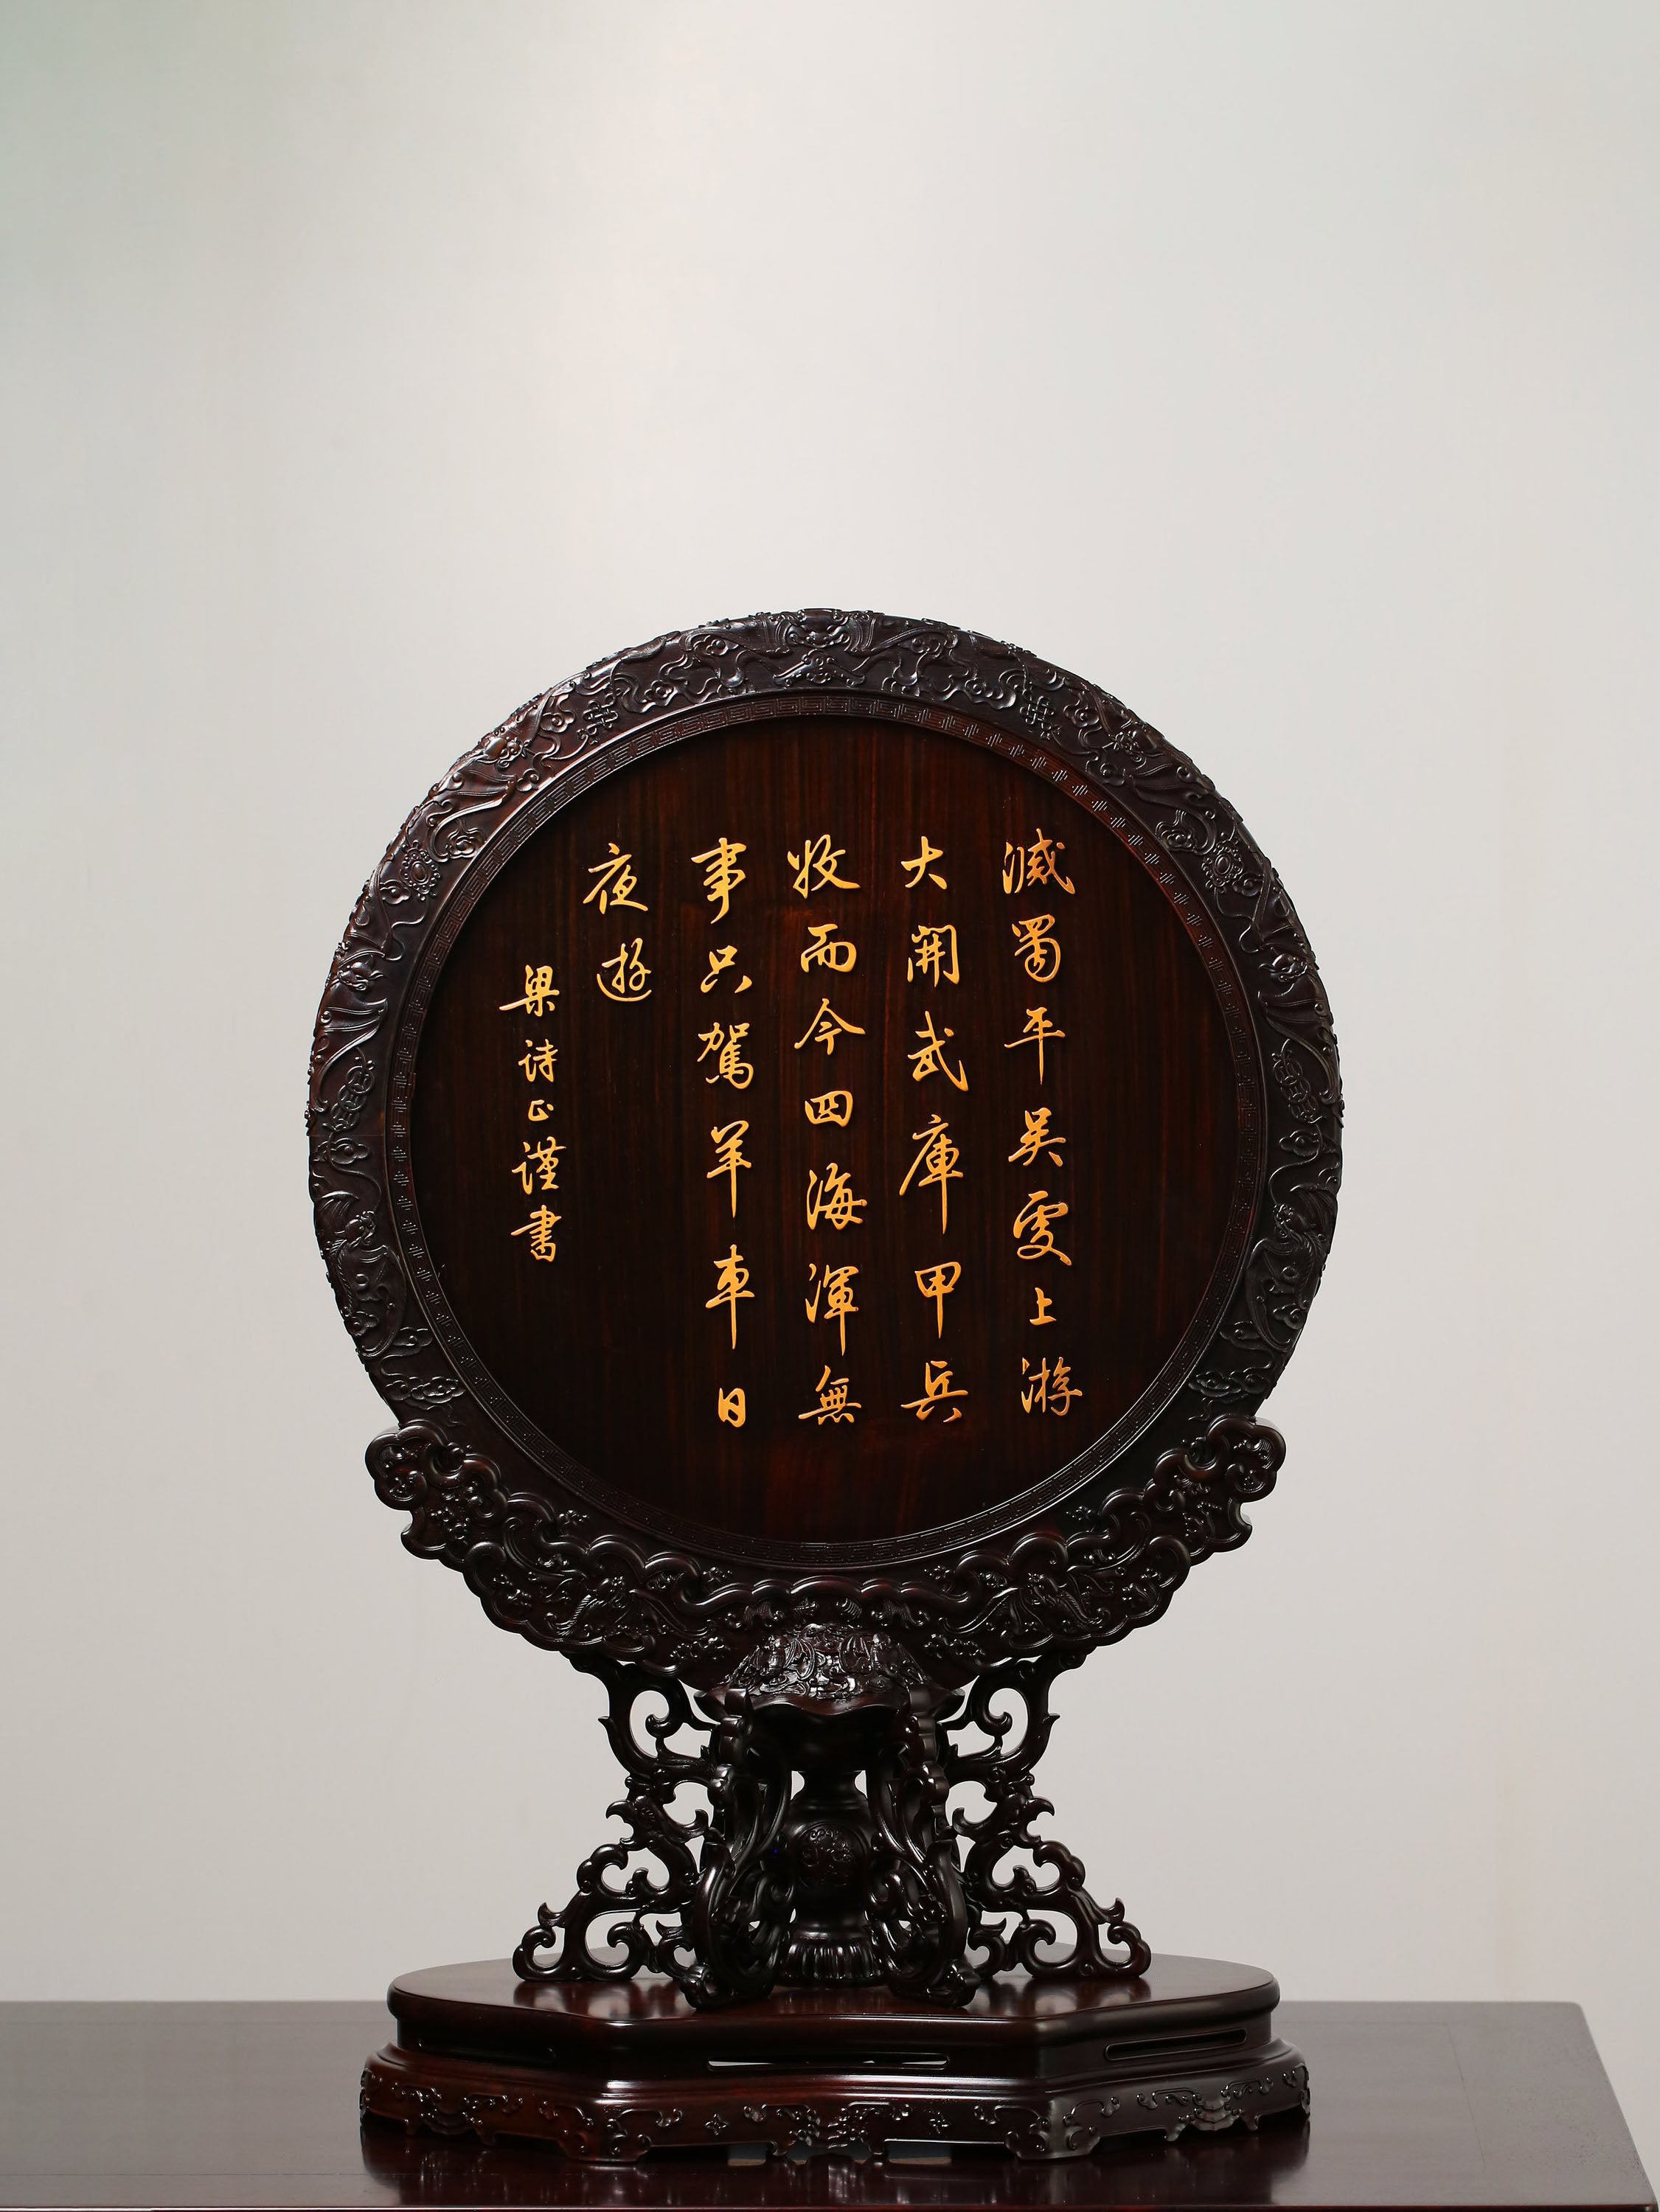 滅蜀平吳處上游
大開武庫甲兵
收而今四海渾無
事只駕羊車日
夜遊
梁詩正謹書